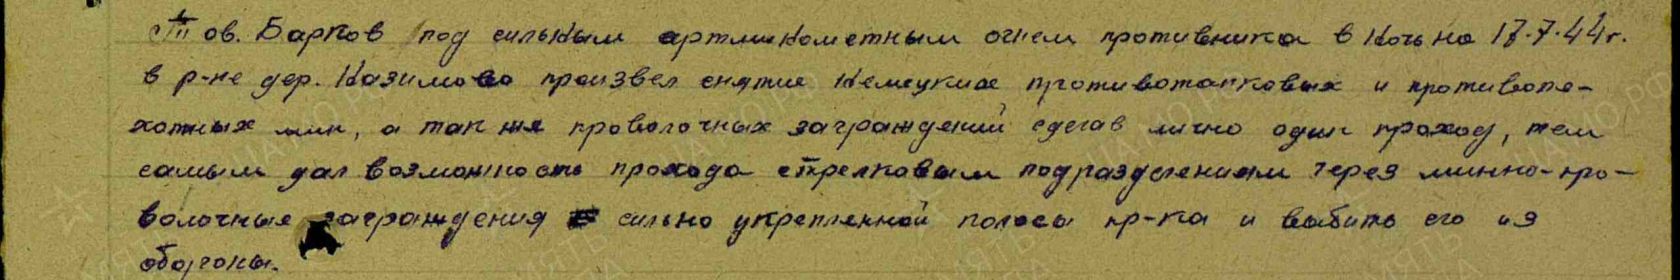 Тов. Барков под сильным артминометным огнем противника в ночь на 17.7.44г.
в р-не дер. Казимово произвел снятие немецких противотанковых и противопе-
хотных мин, а так же проволочных заграждений сделав лично один проход, тем
самым дал возможность прохода стрелковым подразделениям через минно-про-
волочные заграждения сильно укрепленной полосы пр-ка и выбить его из
обороны.